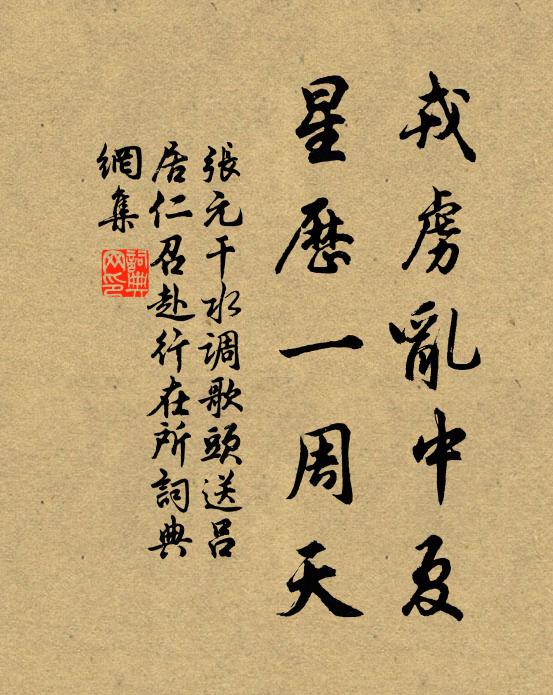 戎虜亂中夏
星歷一周天
張元干水調歌頭送呂
居仁召赴行在所詞典
網集
詞典網印